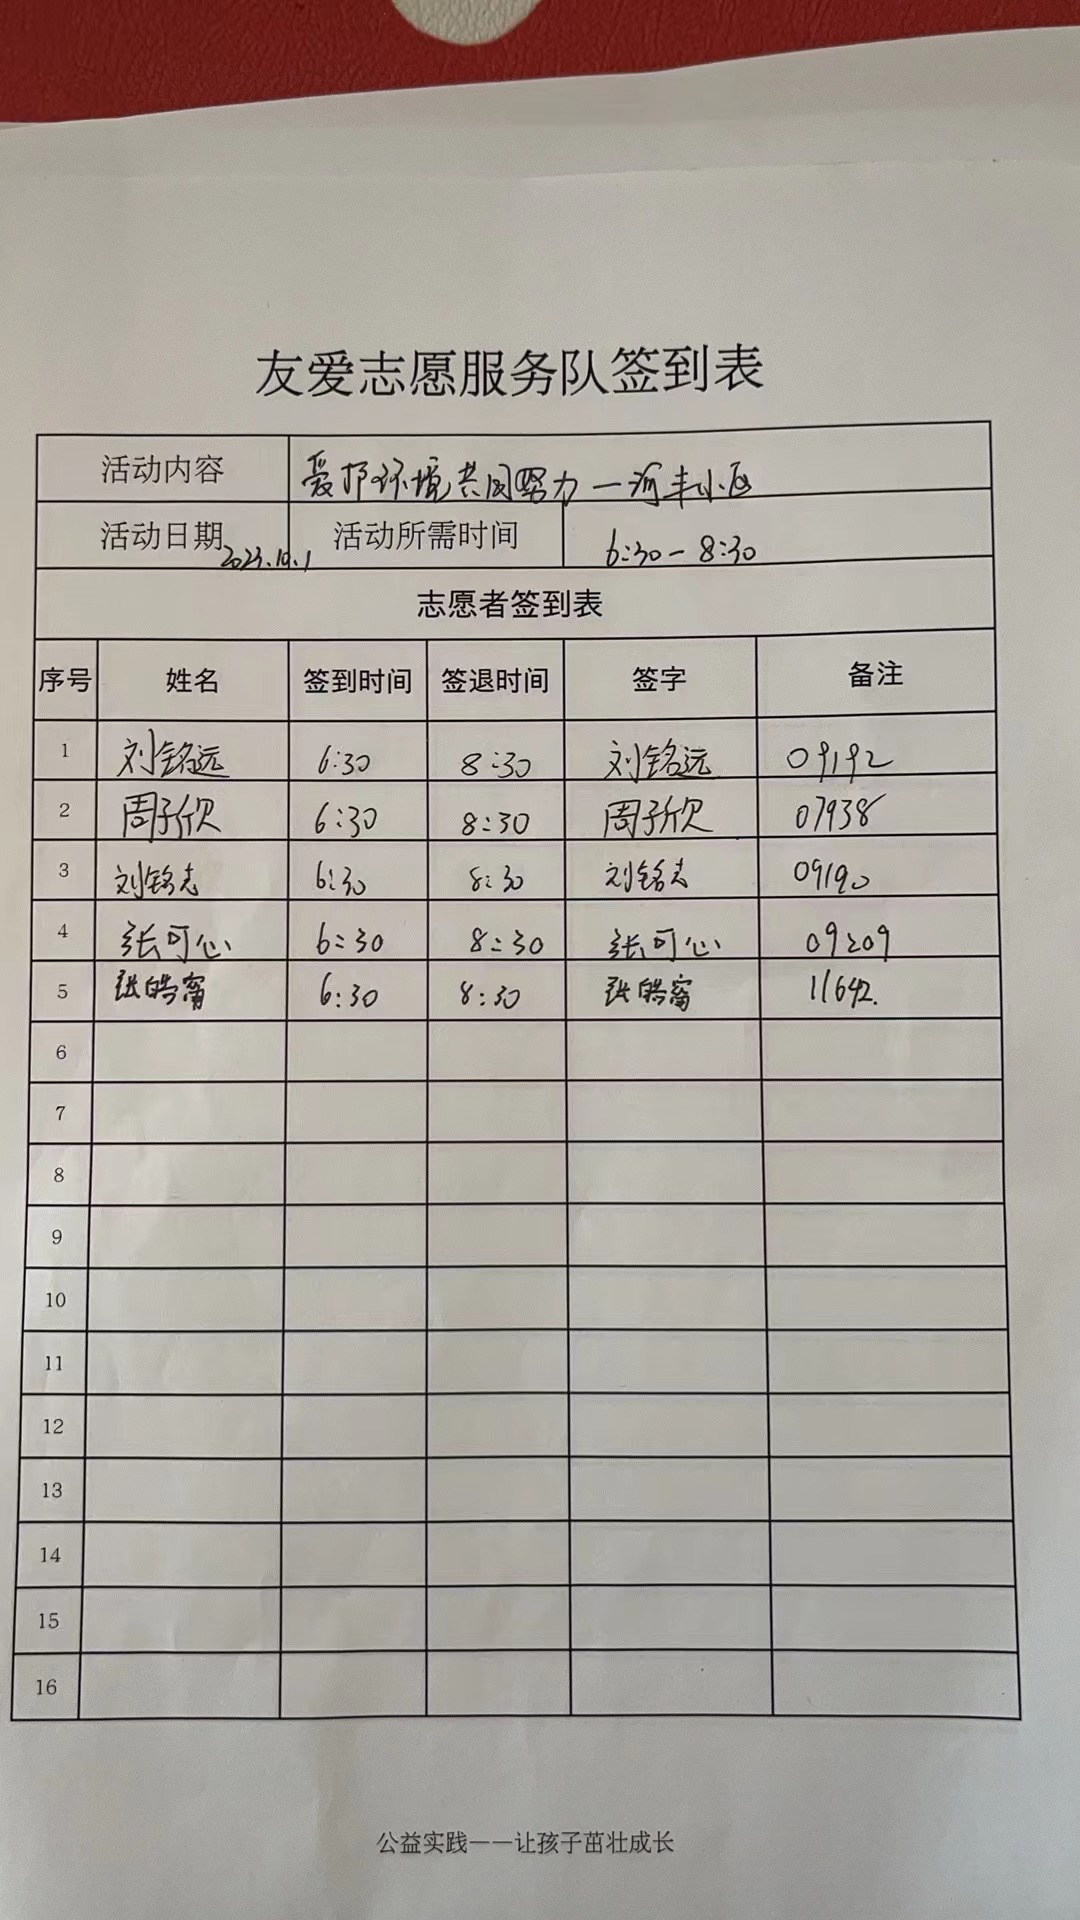 友爱志愿服务队签到表
活动内容 爱护环境共同努力一河丰小区
活动日期 2023.10.1 活动所需时间 6:30-8:30
志愿者签到表
序号 姓名 签到时间 签退时间 签字 备注
1 刘铭远 6:30 8:30 刘铭远 09192
2 周子欣 6:30 8:30 周子欣 07938
3 刘铭志 6:30 8:30 刘铭志 09190
4 张可心 6:30 8:30 张可心 09209
5 张皓甯 6:30 8:30 张皓甯 11642.
6
7
8
9
10
11
12
13
14
15
16
公益实践——让孩子茁壮成长